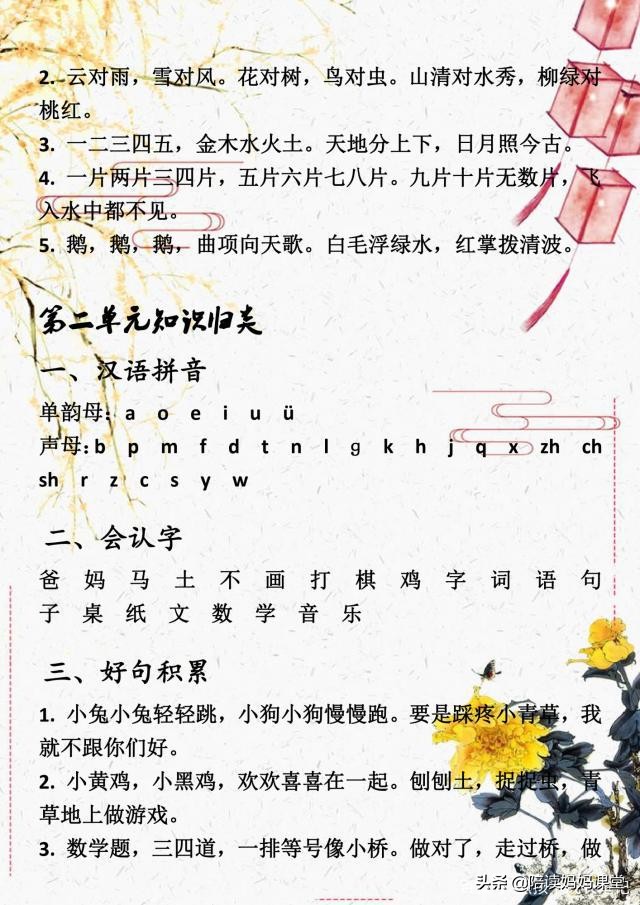 2. 云对雨，雪对风。花对树，鸟对虫。山清对水秀，柳绿对
桃红。
3. 一二三四五，金木水火土。天地分上下，日月照今古。
4. 一片两片三四片，五片六片七八片。九片十片无数片，飞
入水中都不见。
5. 鹅，鹅，鹅，曲项向天歌。白毛浮绿水，红掌拨清波。
第二单元知识归类
一、汉语拼音
单韵母：a o e i u ü
声母：b p m f d t n l ɡ k h j q x zh ch
sh r z c s y w
二、会认字
爸 妈 马 土 不 画 打 棋 鸡 字 词 语 句
子 桌 纸 文 数 学 音 乐
三、好句积累
1. 小兔小兔轻轻跳，小狗小狗慢慢跑。要是踩疼小青草，我
就不跟你们好。
2. 小黄鸡，小黑鸡，欢欢喜喜在一起。刨刨土，捉捉虫，青
草地上做游戏。
3. 数学题，三四道，一排等号像小桥。做对了，走过桥，做
头条 @陪读妈妈课堂